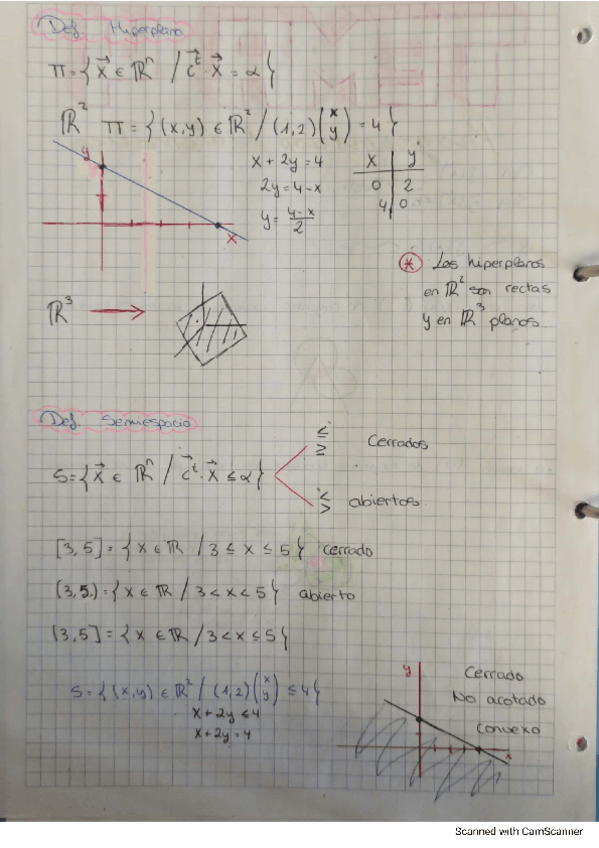 Def. Hiperplano
π = { x⃗ ∈ ℝⁿ / c⃗ᵗ · x⃗ = α }
ℝ² π = { (x,y) ∈ ℝ² / (1,2) (x y) = 4 }
y
x
x + 2y = 4
2y = 4-x
y = 4-x / 2
x y
0 2
4 0
* Los hiperplanos
en ℝ² son rectas
y en ℝ³ planos
ℝ³ →
Def. Semiespacio
S = { x⃗ ∈ ℝⁿ / c⃗ᵗ · x⃗ ≤ α }
≤
≥ Cerrados
<
> abiertos
[3,5] = { x ∈ ℝ / 3 ≤ x ≤ 5 } cerrado
(3,5) = { x ∈ ℝ / 3 < x < 5 } abierto
(3,5] = { x ∈ ℝ / 3 < x ≤ 5 }
S = { (x,y) ∈ ℝ² / (1,2) (x y) ≤ 4 }
x + 2y ≤ 4
x + 2y = 4
y
x
Cerrado
No acotado
Convexo
Scanned with CamScanner